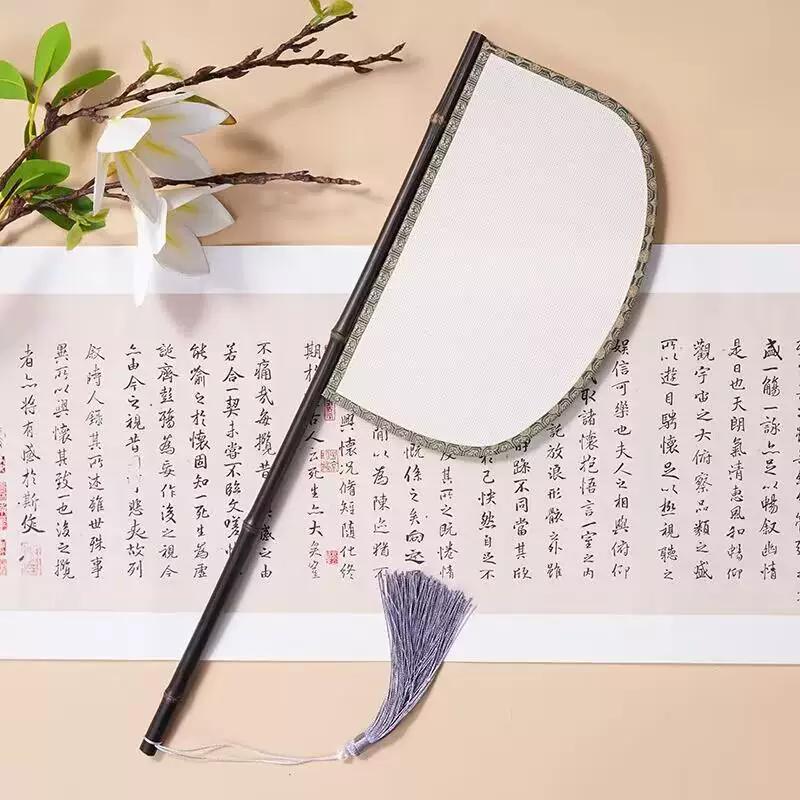 盛一觴一詠亦足以暢叙幽情
是日也天朗氣清惠風和暢仰
觀宇宙之大俯察品類之盛
所以遊目騁懷足以極視聽之
娛信可樂也夫人之相與俯仰
取諸懷抱悟言一室之內
託放浪形骸之外雖
躁不同當其欣
於己快然自足不
其所之既惓情
慨係之矣向之
間以為陳迹猶不
興懷況脩短隨化終
期於
古人云死生亦大矣豈
不痛哉每攬昔
感之由
若合一契未嘗不臨文嗟
能喻之於懷固知一死生為虛
誕齊彭殤為妄作後之視今
亦由今之視昔
悲夫故列
叙時人錄其所述雖世殊事
異所以興懷其致一也後之攬
者亦將有感於斯文